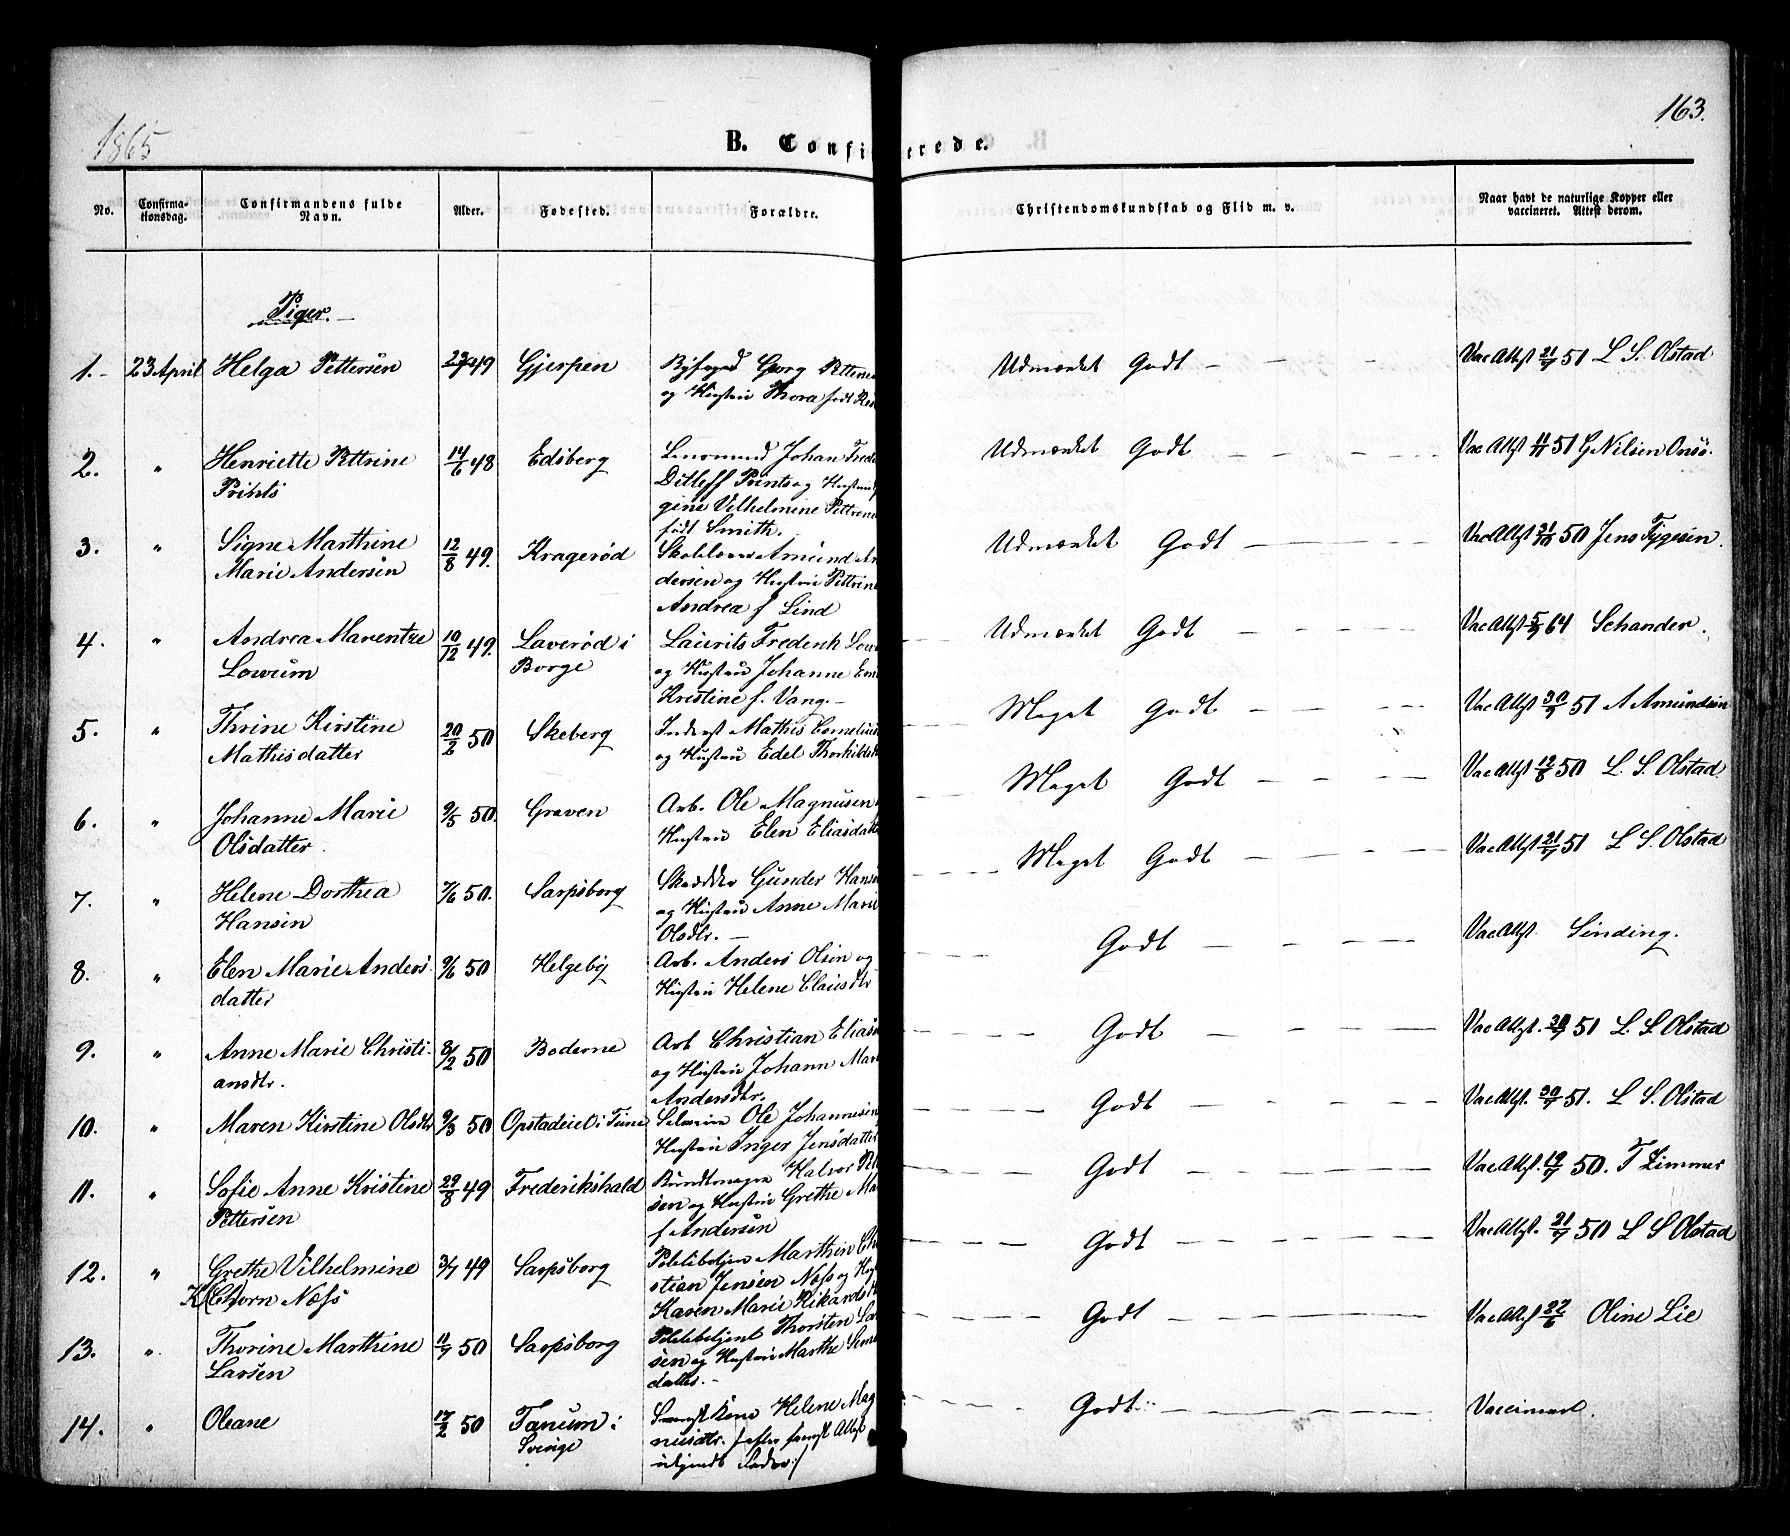 1865
163.
B. Confirmerede.
No.
Confirma-
tionsdag.
Confirmandens fulde
Navn.
Alder.
Fødested.
Forældre.
Christendomskundskab og Flid m. v.
Naar havt de naturlige Kopper eller
vaccineret. Attest derom.
Piger.
1. 23 April Helga Pettersen 49 Gjerpen Byfoged Georg Petterse Udmærket Godt Vac Attest 21/7 51 L. S. Olstad
og Hustru Thora født
2. " Henriette Pettrine 14/6 48 Edsberg Johan Frede Udmærket Godt Vac Attest 11/11 51 G Nilsen Onsø.
Prints
Ditleff Prints og Hustru
gine Vilhelmine Pettrene
født Smith.
3. " Signe Marthine 12/8 49. Kragerød Skolelærer Amund An Udmærket Godt Vac Attest 50 Jens Tygesen.
Marie Andersen
dersen og Hustru Pettrine
Andrea f Lind
4. " Andrea Marentze 10/12 49. Laverød i Laurits Frederik Low Udmærket Godt Vac Attest 64 Schander.
Lowum Borge og Hustru Johanne Em
Kristine f. Vang.
5. " Thrine Kirstine 20/2 50 Skeberg Inderst Mathis Cornelius Meget Godt Vac Attest 51 A Amundsen
Mathisdatter og Hustru Edel Thorkilds
6. " Johanne Marie 9/5 50. Graven Arb. Ole Magnusen Meget Godt Vac Attest 12/8 50 L. S. Olstad.
Olsdatter. Hustru Elen Eliasdatt
7. " Helene Dorthea 7/6 50. Sarpsborg Skrædder Gunder Hans Meget Godt Vac Attest 21/7 51 L S. Olstad
Hansen og Hustru Anne Marie
Olsdtr.
8. " Elen Marie Anders- 9/6 50 Helgeby Arb. Anders Olsen og Godt Vac Attest Sinding.
datter Hustru Helene Clausdtr
9. " Anne Marie Christi- 8/2 50 Boderne Arb Christian Elias Godt Vac Attest. 51 L. S. Olstad
ansdtr. og Hustru Johann Mar
Andersdtr.
10. " Maren Kirstine Olsdtr 9/3 50 Opstadeiet i Tune Selveier Ole Johannesen Godt Vac Attest. 51. L. S. Olstad
Hustru Inger Jensdatter
11. " Sofie Anne Kristine 29/8 49 Frederikshald Bundtmager Halvor Godt Vac Attest. 19/7 50. T Zimmer
Pettersen sen og Hustru Grethe Ma
f Andersen
12. " Grethe Vilhelmine 3/7 49 Sarpsborg Politibetjen Marthin Ch Godt Vac Attest. 21/7 50 L S Olstad
Næss stian Jensen Næss og
Karen Marie Rikards
13. " Thorine Marthine 11/7 50 Sarpsborg Politibetjent Thorsten La Godt Vac Attest 22/6 Oline Lie
Larsen sen og Hustru Marthe
datter.
14. " Oleane 17/2 50 Tanum i Svensk Kone Helene Mag Godt Vaccineret.
Sverige nusdtr. /: efter svensk Attest
ukjendt Fader :/